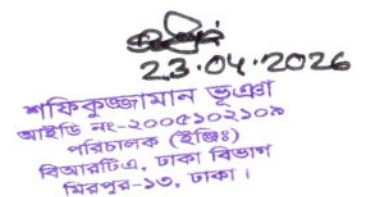 23.04.2026
শফিকুজ্জামান ভূঞা
আইডি নং-২০০৫১০২১০৯
পরিচালক (ইঞ্জিঃ)
বিআরটিএ, ঢাকা বিভাগ
মিরপুর-১৩, ঢাকা।